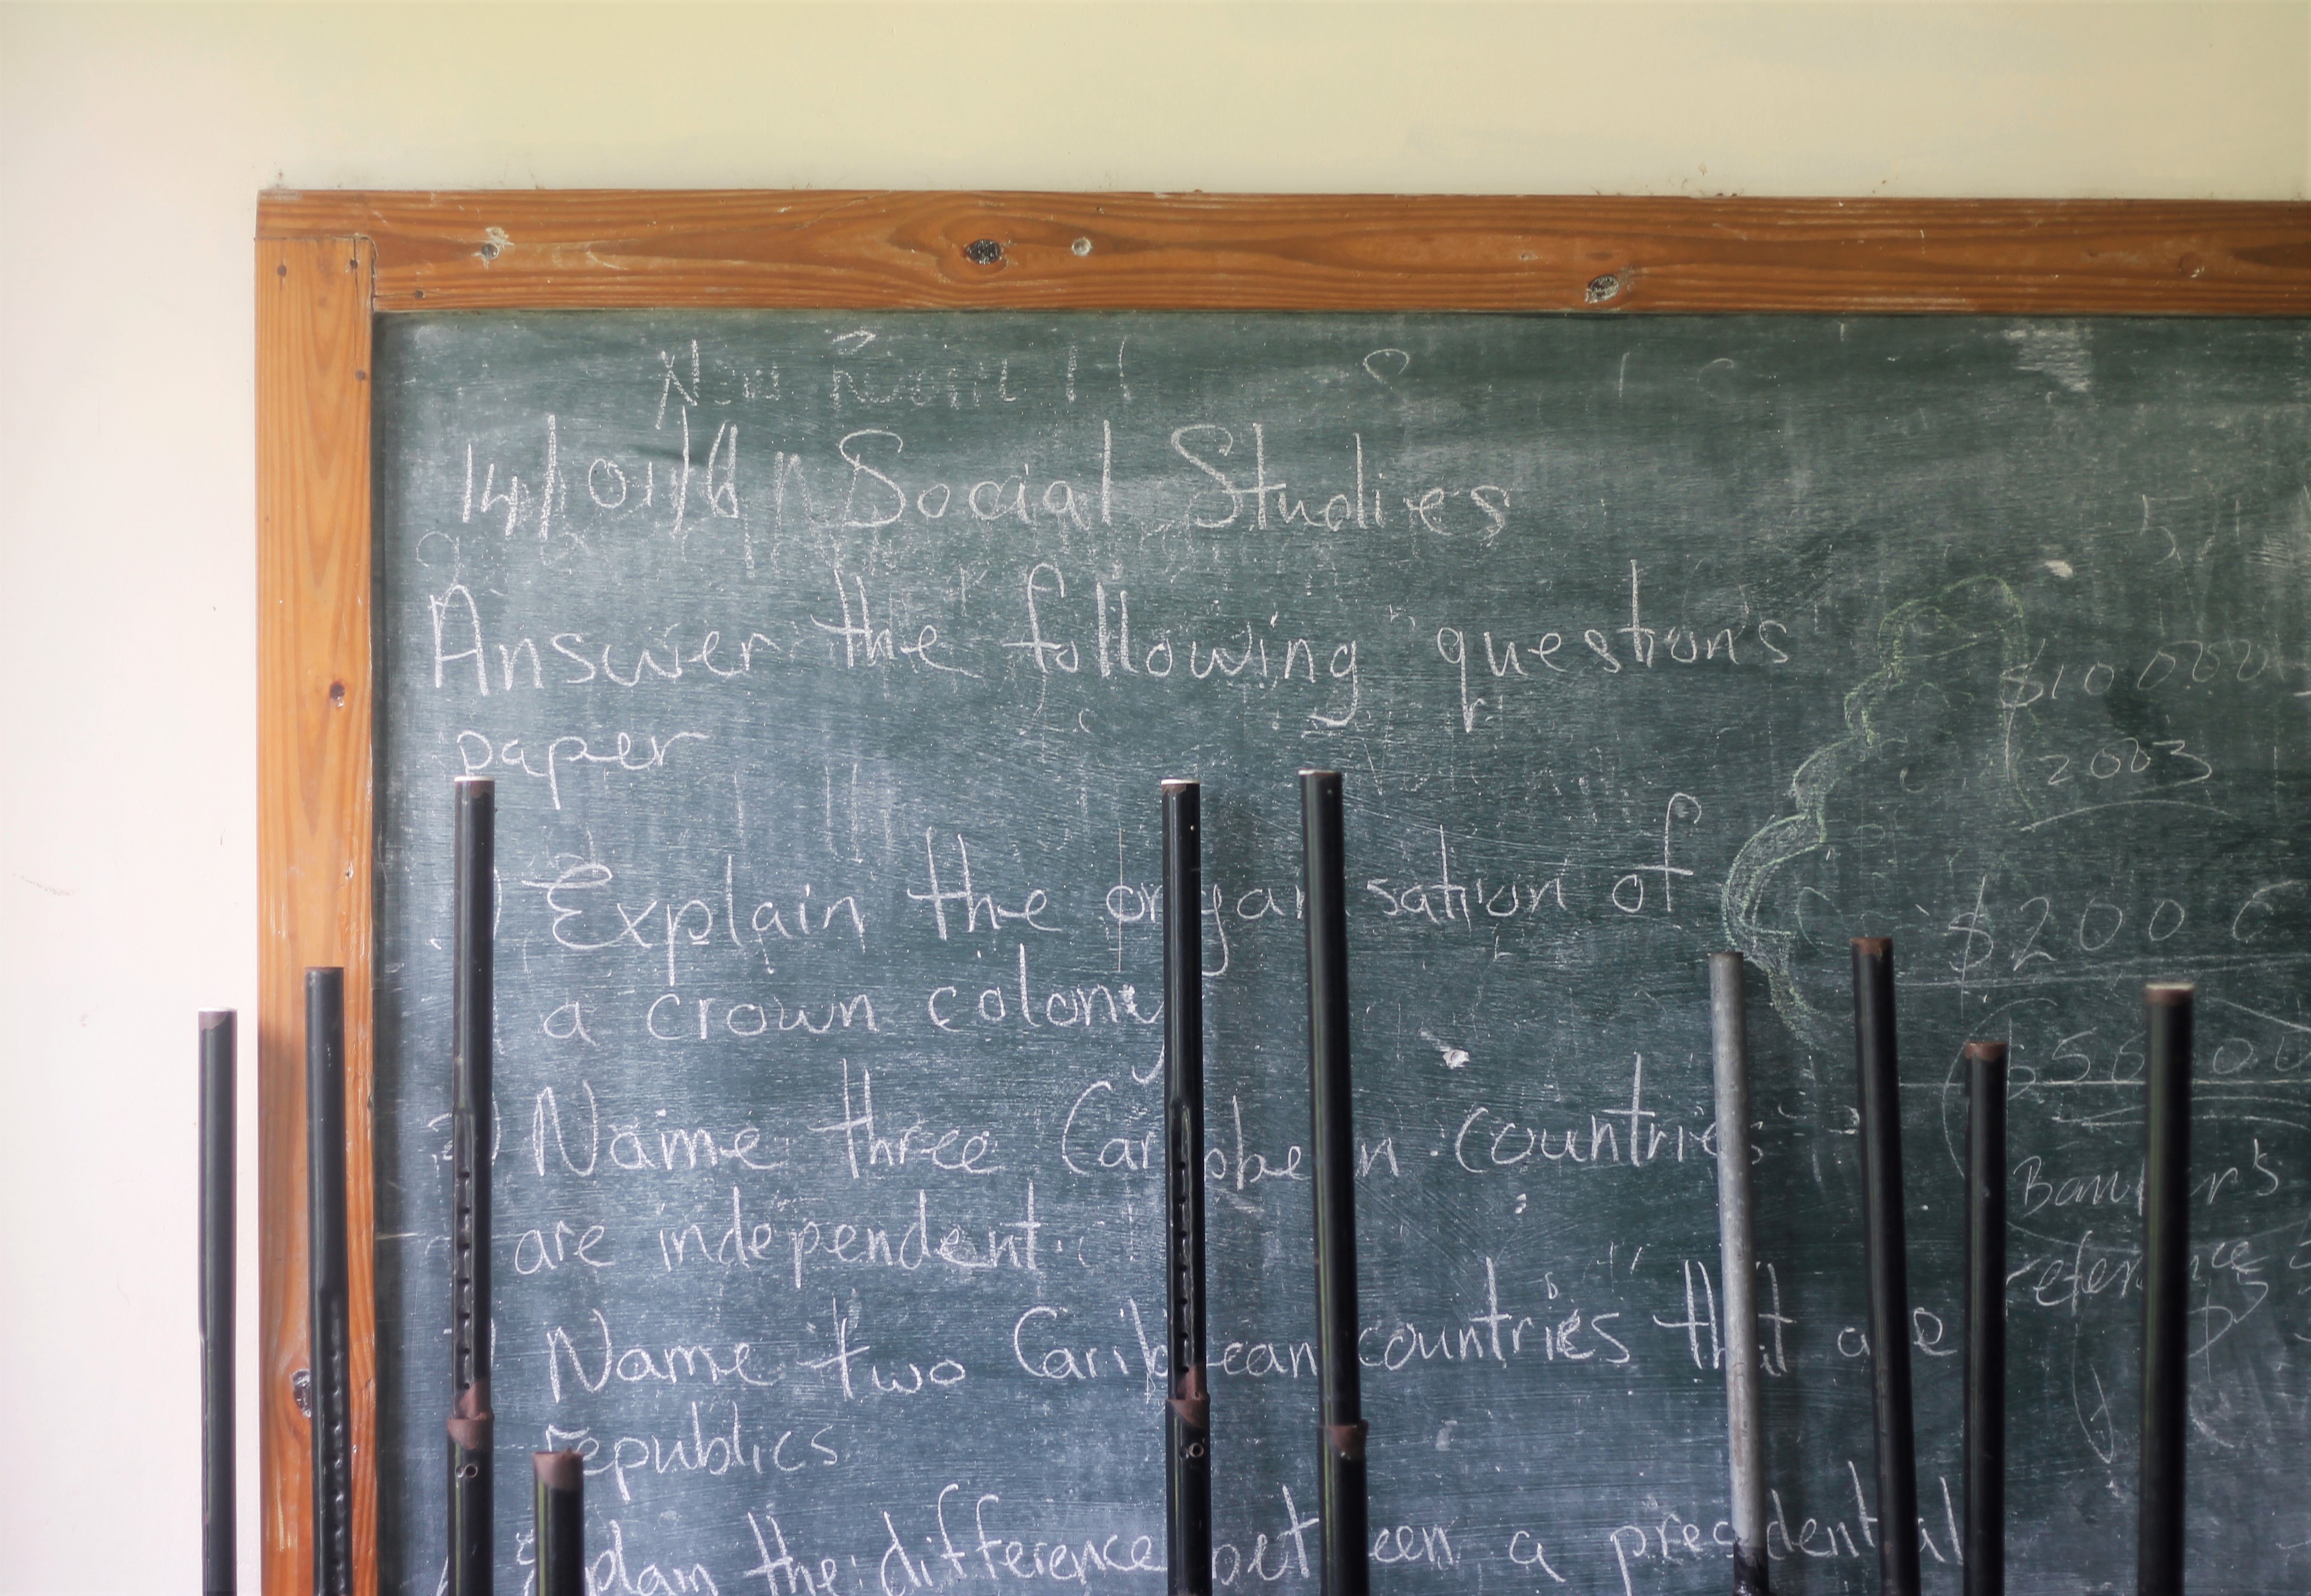 14/01/16 Social Studies
Answer the following questions
paper
1) Explain the organisation of
a crown colony
2) Name three Caribbean countries
are independent.
) Name two Caribbean countries that are
republics
Explain the difference between a presidential
$10000
2003
$200
Banker's
reference